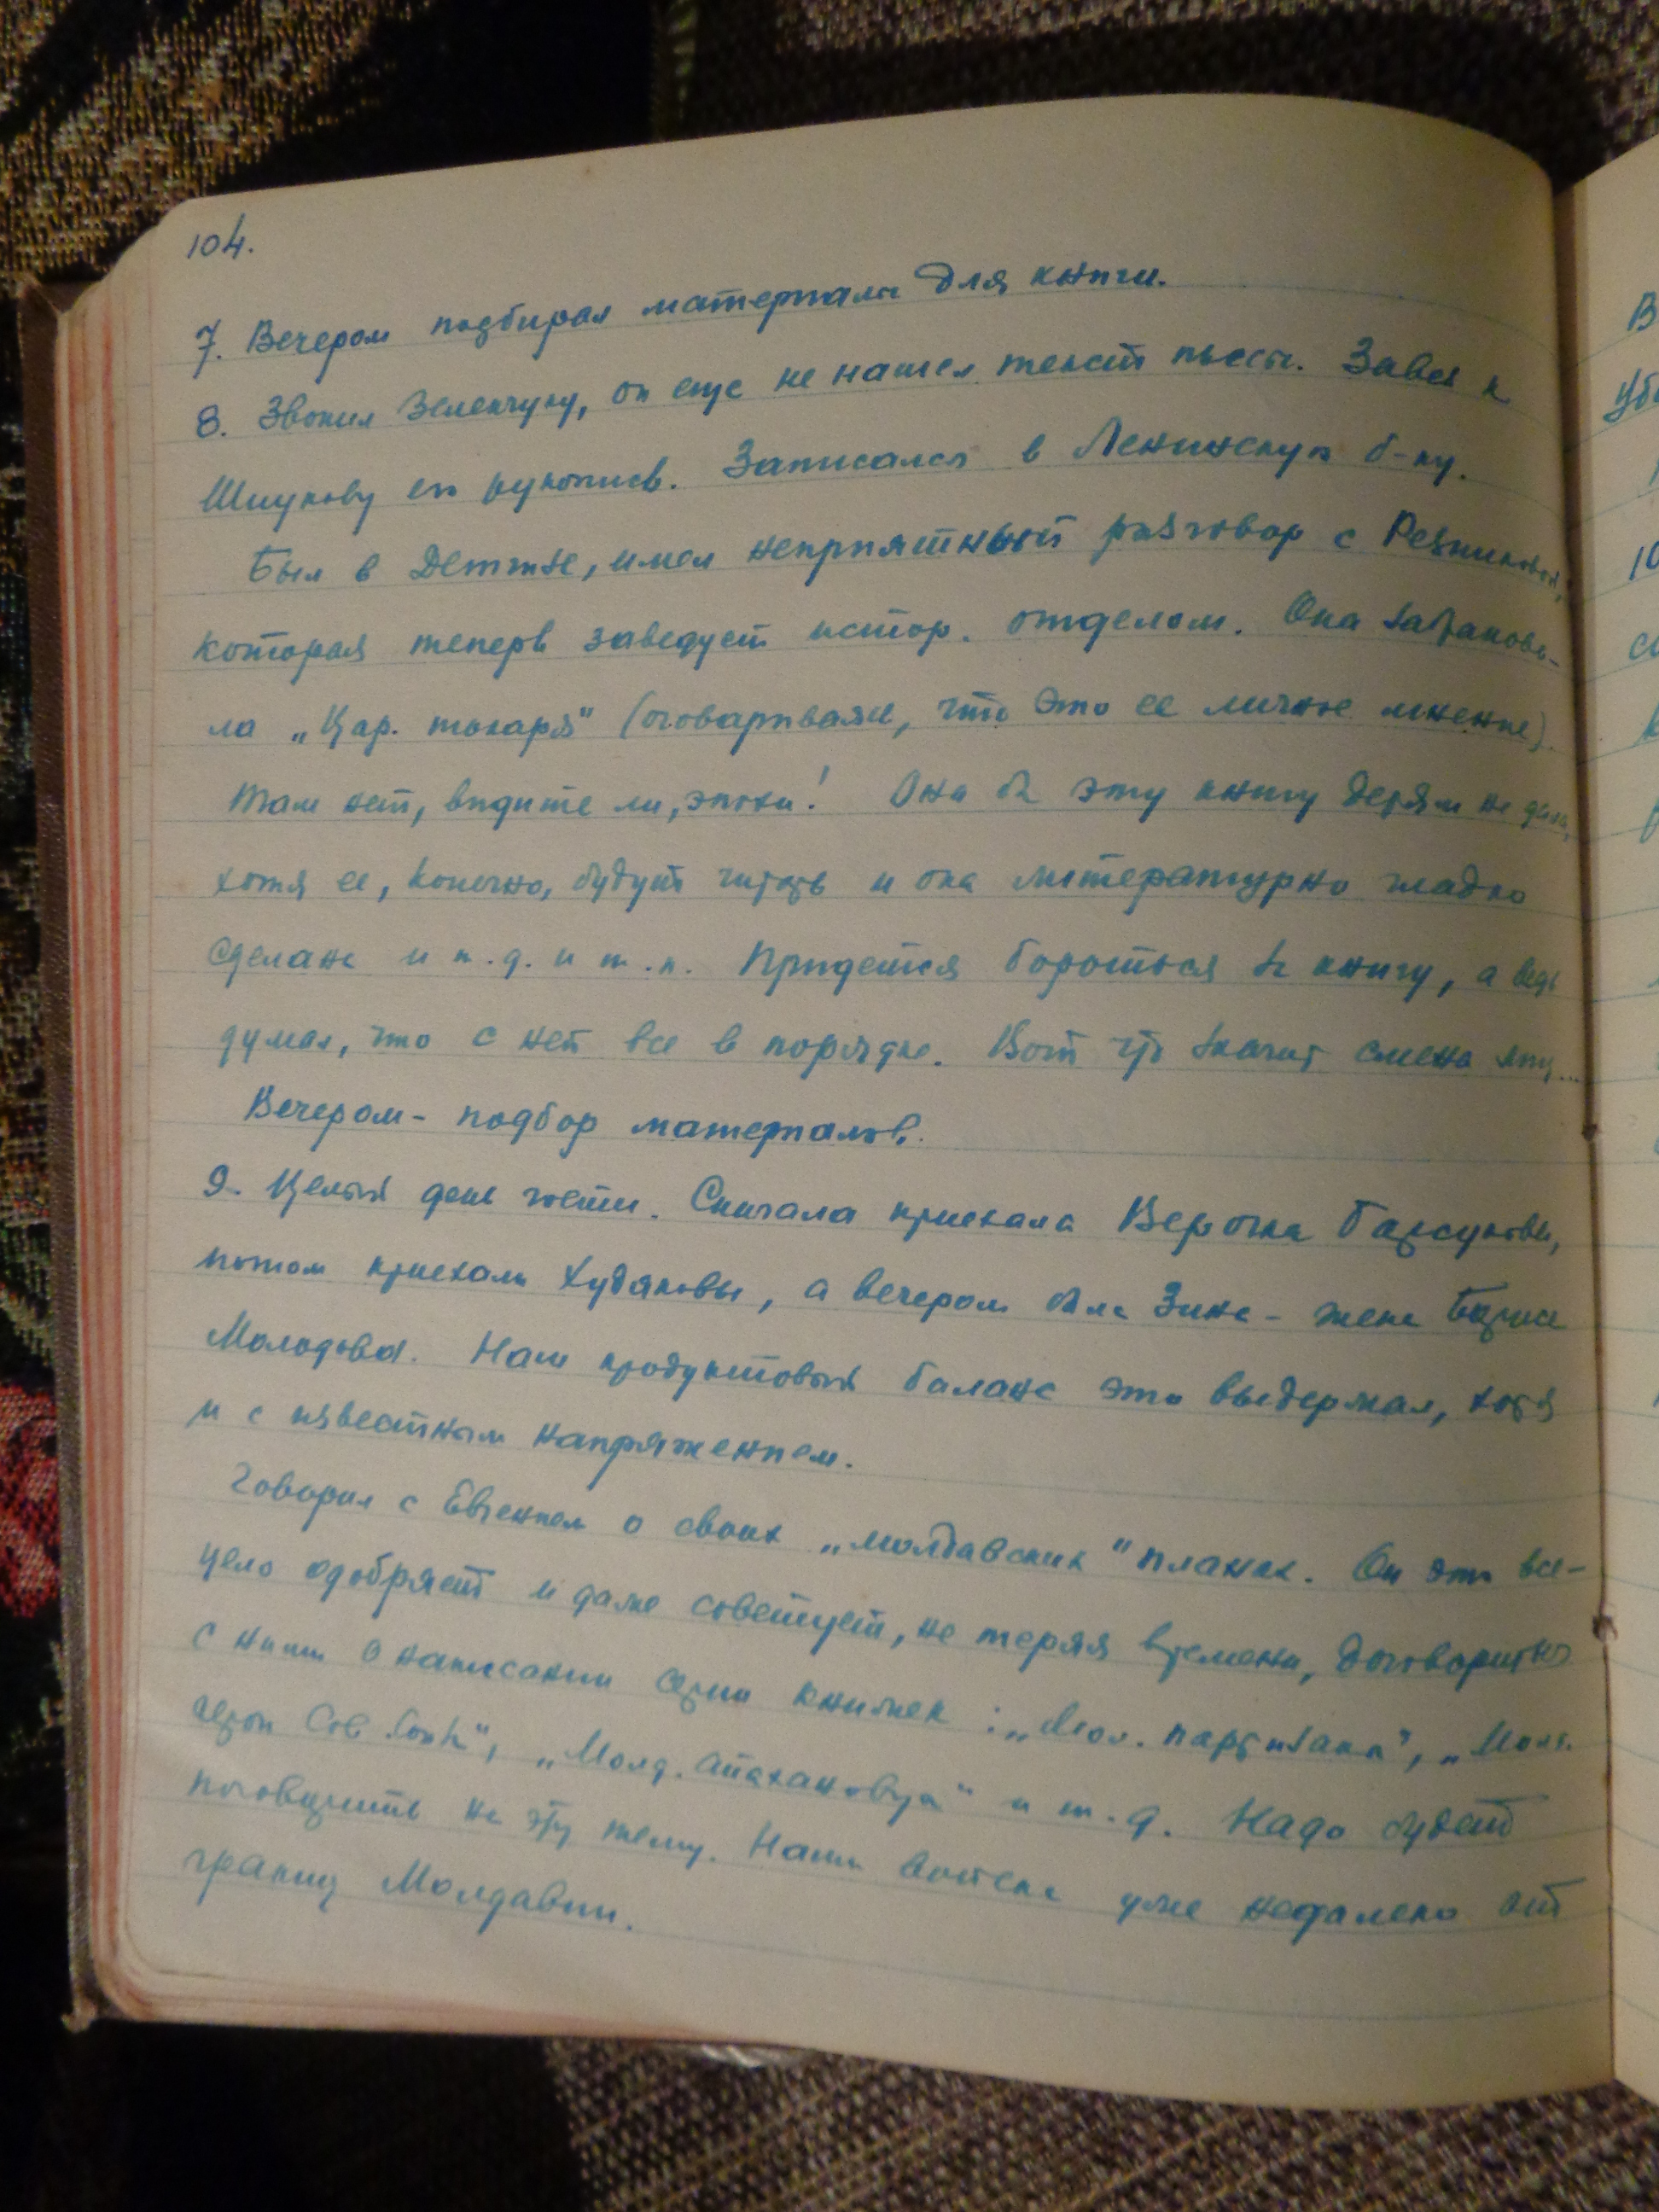 104.
7. Вечером подбирал материалы для книги.
8. Звонил Зеленчуку, он еще не нашел текст пьесы. Завез к
Шмукову его рукопись. Записался в Ленинскую б-ку.
Был в Детгизе, имел неприятный разговор с Резниковой,
которая теперь заведует истор. отделом. Она забракова-
ла „Цар. токаря" (оговариваясь, что это ее личное мнение).
Там нет, видите ли, эпохи! Она бы эту книгу детям не дала,
хотя ее, конечно, будут читать и она литературно гладко
сделана и т.д. и т.п. Придется бороться за книгу, а ведь
думал, что с ней все в порядке. Вот что значит смена
Вечером - подбор материалов.
9. Целый день гости. Сначала приехала Верочка Барсукова,
потом приехали Худяковы, а вечером была Зина - жена Бориса
Молодова. Наш продуктовый баланс это выдержал, хотя
и с известным напряжением.
Говорил с Евгением о своих „молдавских" планах. Он это все-
цело одобряет и даже советует, не теряя времени, договориться
с ними о написании серии книжек: „Мол. партизаны", „Молд.
Герои Сов. Союза", „Молд. стахановцы" и т.д. Надо будет
поговорить на эту тему. Наши войска уже недалеко от
границ Молдавии.
В
10